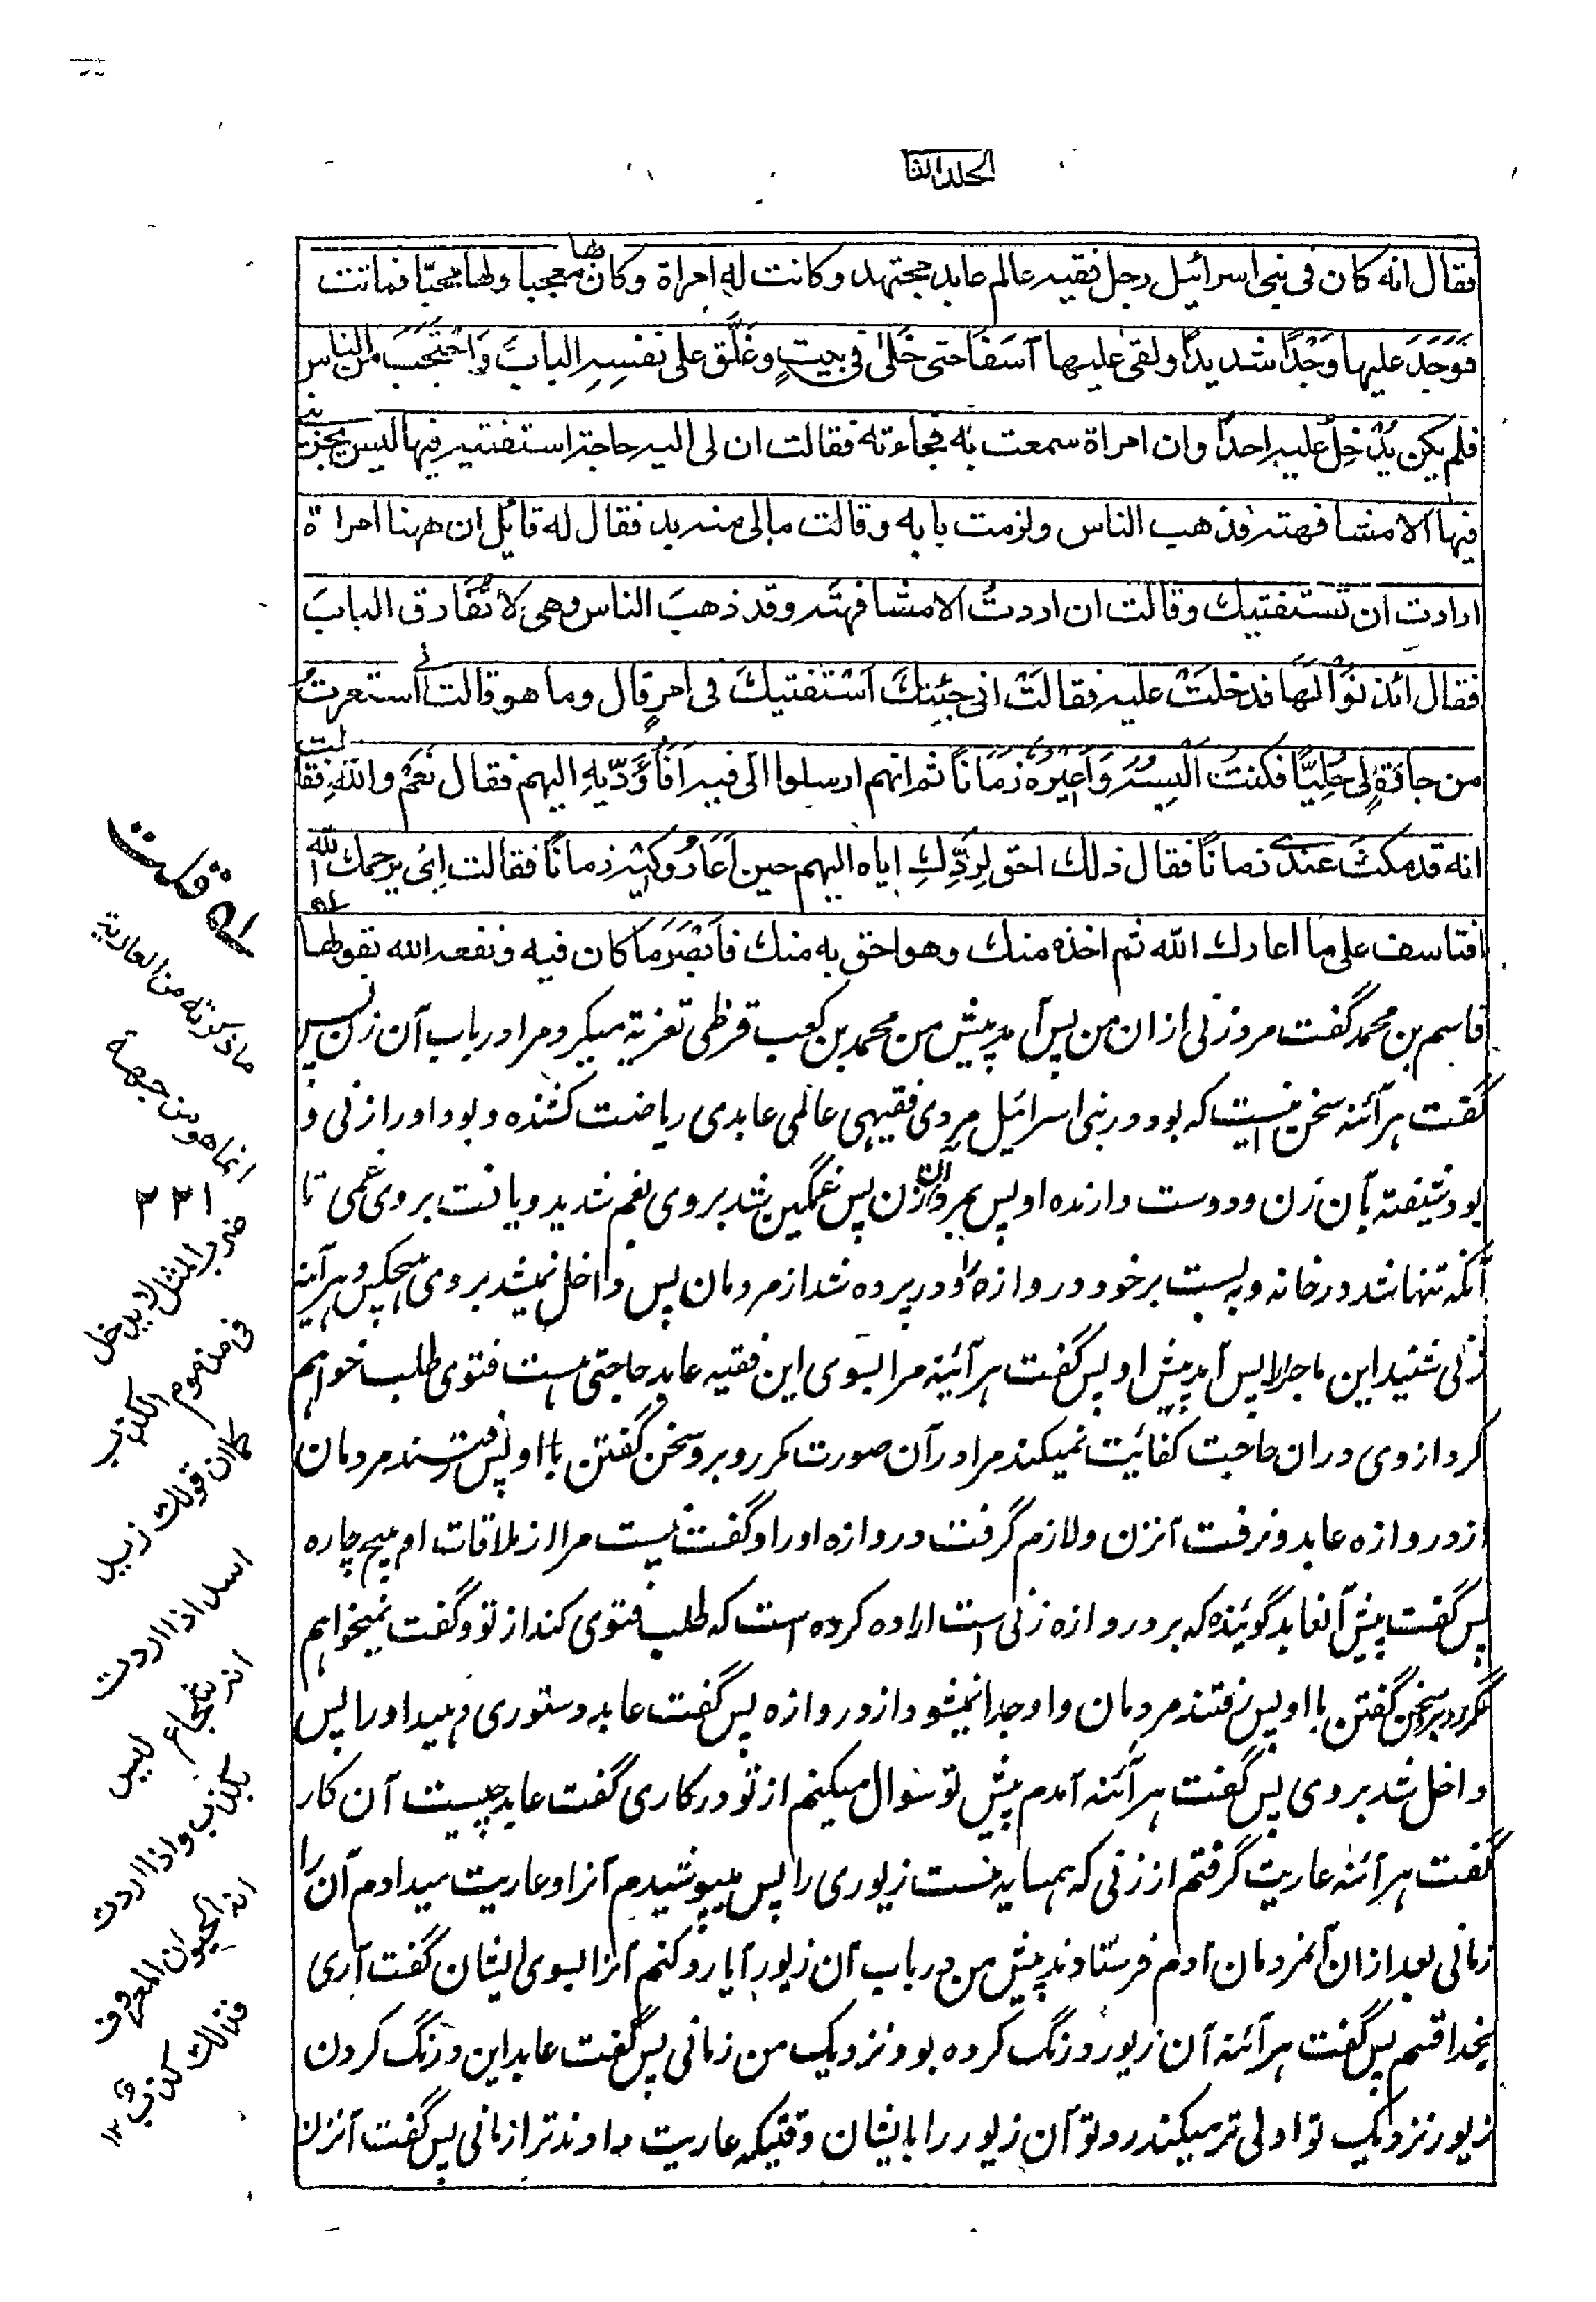 الجلد الثا
فقال انه كان فى بنى اسرائيل رجل فقيه عالم عابد مجتهد وكانت له امراة وكان بها معجبا ولها محبّا فماتت
فَوَجَدَ عليها وَجْدًا شديدًا ولقى عليها آسَفًا حتى خَلىٰ فى بيتٍ وغَلَّق على نفسِهِ البابَ وَاحْتَجَبَ من الناس
فلم يكن يَدْخل عليه احدٌ وان امراة سمعت به فجاءته فقالت ان لى اليه حاجة استفتيه فيها ليس يجزينى
فيها الا مشافهته فذهب الناس ولزمت بابه وقالت مالى منه بد فقال له قائل ان ههنا امراة
ارادت ان تستفتيك وقالت ان اردتُ الا مشافهته وقد ذهبَ الناس وهى لا تُفَارق البابَ
فقال ائذنوا لَهَا فدخلَتْ عليه فقالَتْ انى جِئتكَ اَسْتَفتيكَ فى امرٍ قال وما هو قالت انى استعرتُ
من جارَةٍ لى حُلِيًّا فكنتُ اَلْبِسُهُ وَاُعِيْرُهُ زَمَانًا ثم انهم ارسلوا الىّ فيه اَفَاُؤَدّيهِ اليهم فقال نَعَمْ واللهِ فقالت
انه قد مكثَ عندى زمانًا فقال ذلك احق لِرَدِّكِ اياه اليهم حين اَعَارُوكيه زمانًا فقالت اَىْ يرحمك الله
افتاسف على ما اعارك الله ثم اخذه منك وهو احق به منك فاَبْصَرَ مَا كان فيه ونفعه الله بقولها
قاسم بن محمد گفت مرد زنى ازان من پس آمد پيش من محمد بن كعب قرظى تعزيه ميكرد مرا در باب آن زن پس
گفت هر آئنه سخن اينست كه بود در بنى اسرائيل مردى فقيهى عالمى عابدى رياضت كشنده و بود او را زنى و
بود شيفته بآن زن و دوست دارنده او پس بمرد آن زن پس غمگين شد بروى بغم شديد و يافت بروى غمى تا
آنكه تنها شد در خانه و به بست بر خود دروازه را و در پرده شد از مردمان پس داخل نميشد بروى هيچكس و هر آئنه
زنى شنيد اين ماجرا پس آمد پيش او پس گفت هر آئينه مرا بسوى اين فقيه عابد حاجتى هست فتوى طلب خواهم
كرد از وى در ان حاجت كفائيت نميكند مرا در آن صورت مگر روبرو سخن گفتن با او پس رفتند مردمان
از دروازه عابد و نرفت آنزن و لازم گرفت دروازه او را و گفت نيست مرا از ملاقات او هيچ چاره
پس گفت پيش آنعابد گوينده كه بر دروازه زنى است اراده كرده است كه طلب فتوى كند از تو و گفت نميخواهم
مگر روبرو سخن گفتن با او پس رفتند مردمان و او جدا نميشود از دروازه پس گفت عابد دستورى دهيد او را پس
داخل شد بروى پس گفت هر آئنه آمدم پيش تو سوال ميكنم از تو در كارى گفت عابد چيست آن كار
گفت هر آئنه عاريت گرفتم از زنى كه همسايه منست زيورى را پس ميپوشيدم آنرا و عاريت ميدادم آن را
زمانى بعد ازان آنمردمان آدم فرستادند پيش من در باب آن زيور آيا رد كنم آنرا بسوى ايشان گفت آرى
بخدا قسم پس گفت هر آئنه آن زيور درنگ كرده بود نزديك من زمانى پس گفت عابد اين درنگ كردن
زيور نزديك تو اولى تر ميكند رد تو آن زيور را بايشان وقتيكه عاريت دادند ترا زمانى پس گفت آنزن
۵۱ قلت
ما ذكرته من العارية
انما هو من جهة
۲۳۱
ضرب المثل لا يدخل
فى مفهوم الكذب
كما ان قولك زيد
اسد اذا اردت
انه شجاع ليس
بكذب واذا اردت
انه الحيوان المعروف
فذالك كذب ۱۲